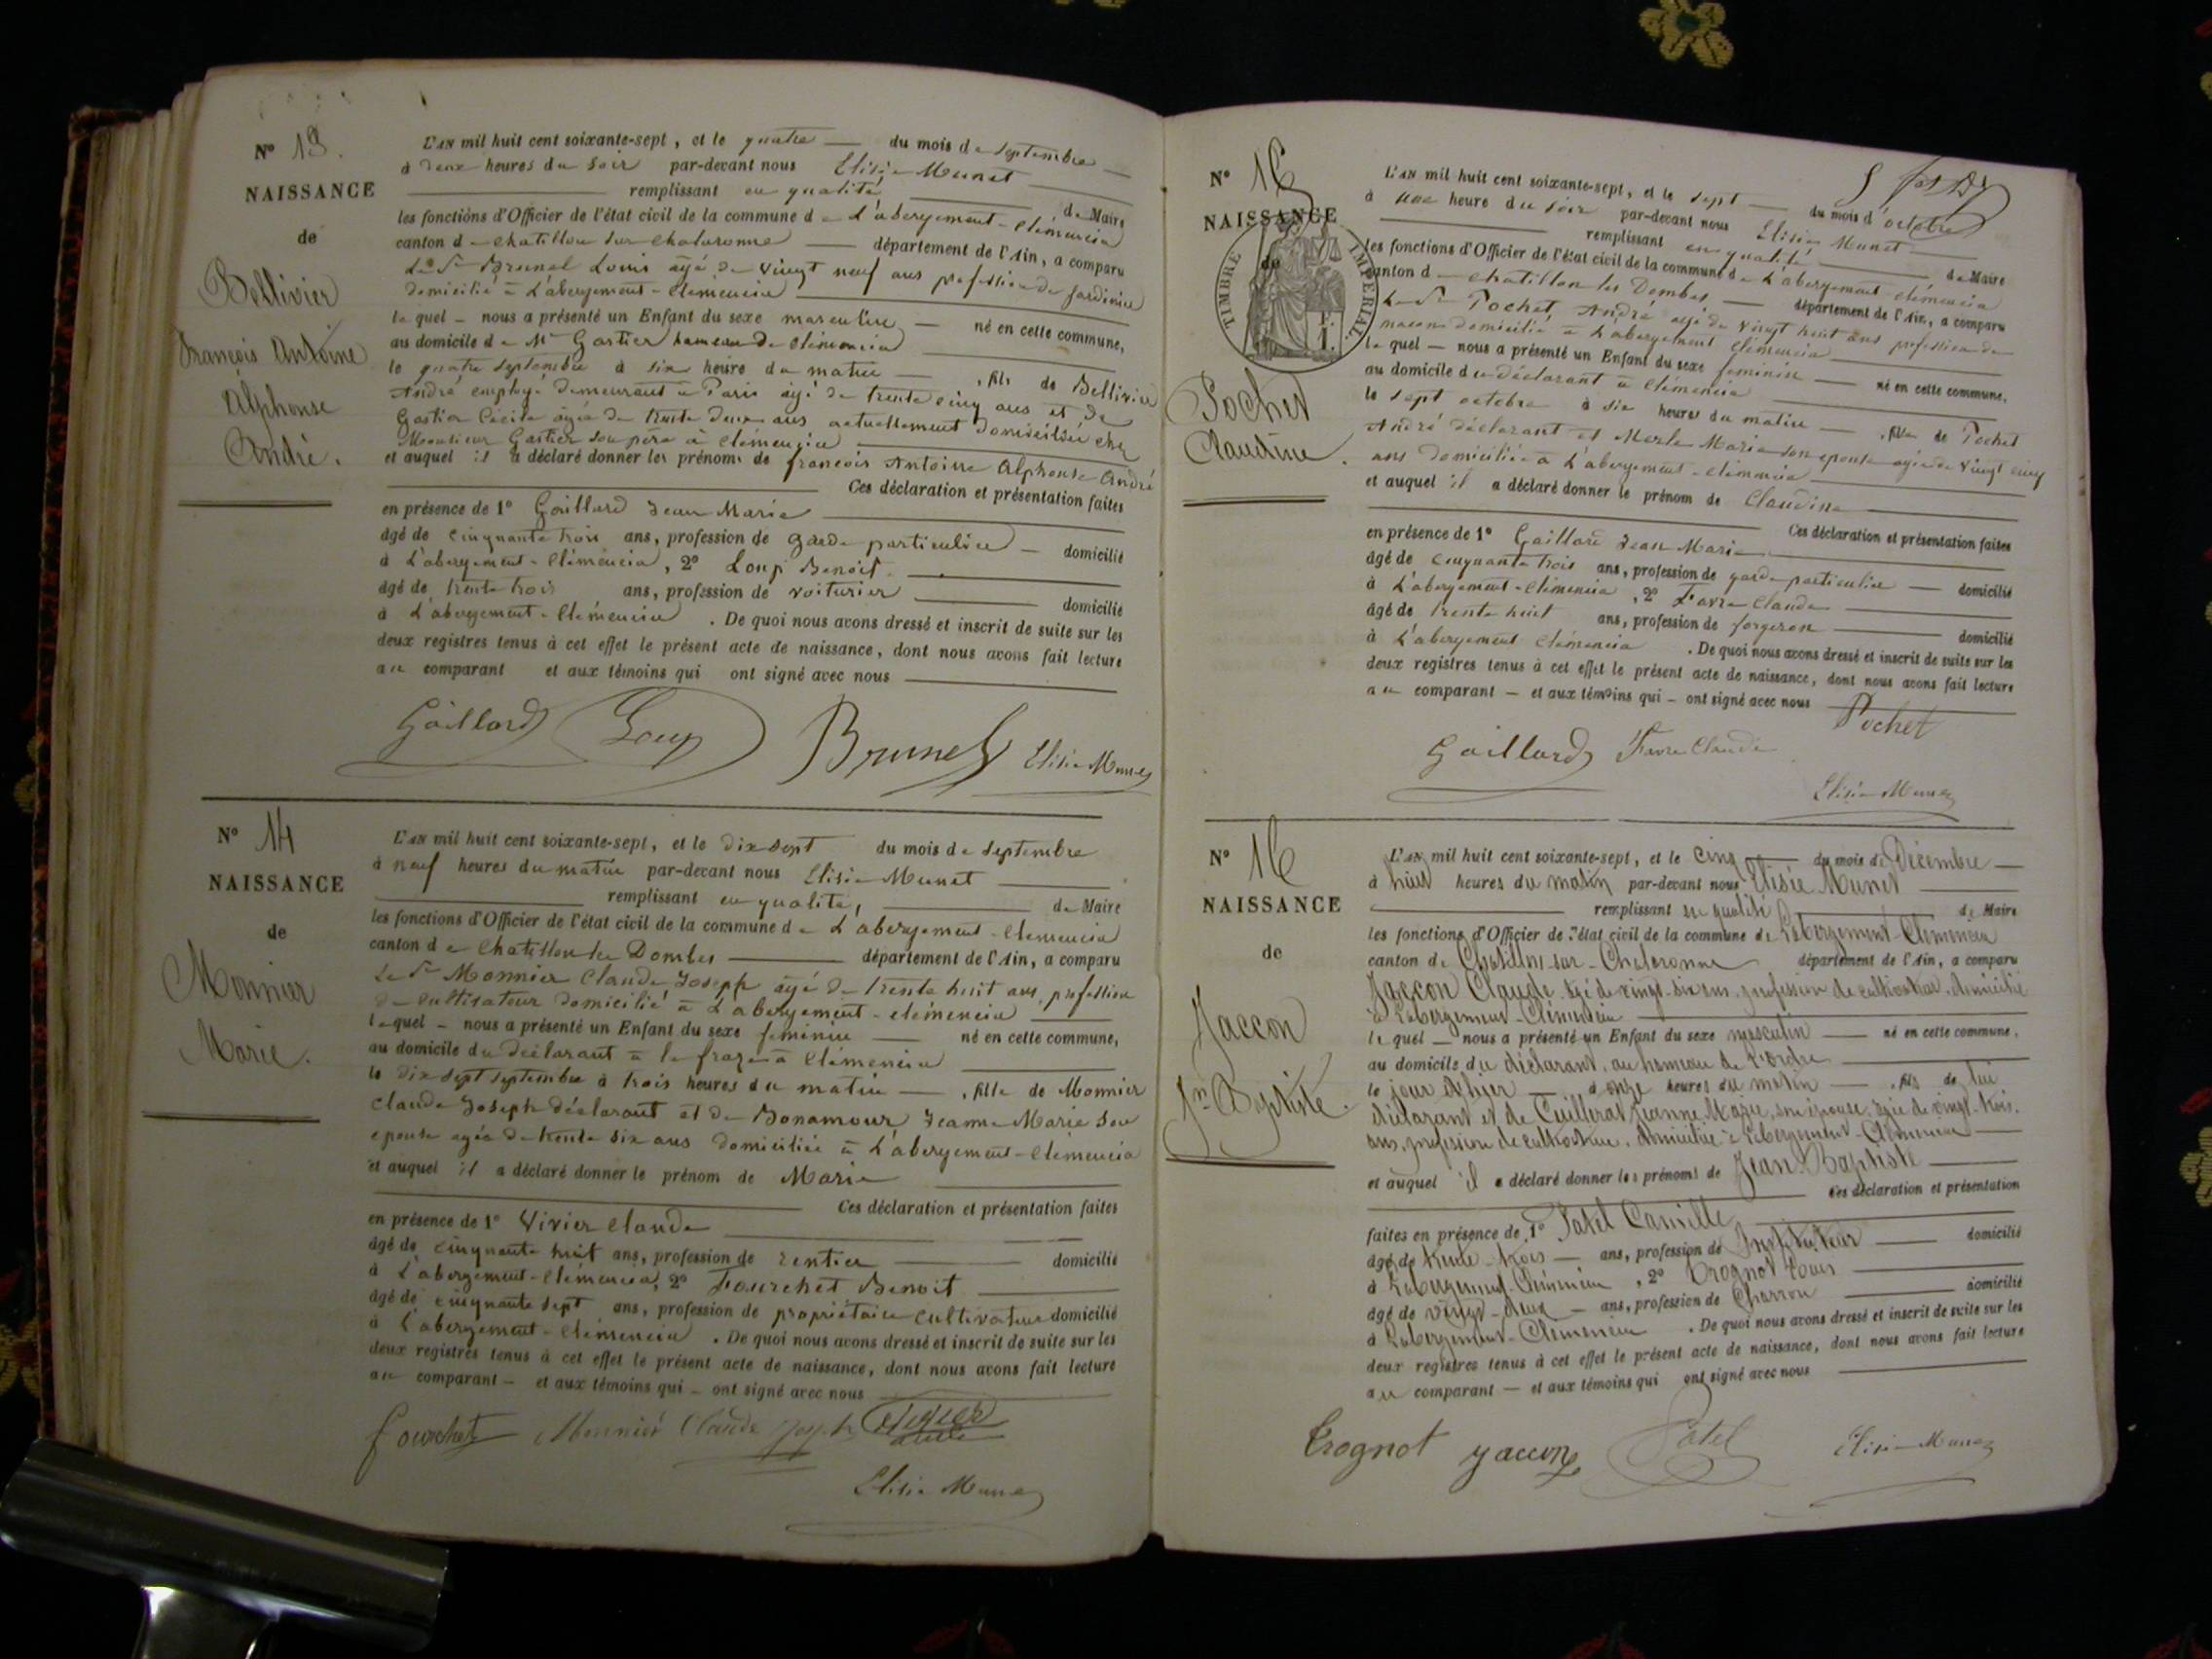 N° 13.
NAISSANCE
de
Bellivier
François Antoine
Alphonse
André.
L'AN mil huit cent soixante-sept, et le quatre du mois de septembre
à deux heures du soir par-devant nous Elisée Munet
remplissant en qualité de Maire
les fonctions d'Officier de l'état civil de la commune de L'abergement-Clémencia
canton de Chatillon sur Chalaronne département de l'Ain, a comparu
Le Sr Brunel Louis âgé de vingt neuf ans profession de jardinier
domicilié à L'abergement-Clemencia
lequel nous a présenté un Enfant du sexe masculin né en cette commune,
au domicile de Mr Gartier hameau de Clémencia
le quatre septembre à six heure du matin , fils de Bellivier
André employé demeurant à Paris âgé de trente cinq ans et de
Cécile âgée de trente deux ans actuellement domiciliée chez
Monsieur Gartier son père à Clémencia
et auquel il a déclaré donner les prénoms de françois Antoine Alphonse André
Ces déclaration et présentation faites
en présence de 1° Gaillard Jean Marie
âgé de cinquante trois ans, profession de garde particulier domicilié
à L'abergement-Clémencia, 2° Loup Benoit
âgé de trente trois ans, profession de voiturier domicilié
à L'abergement-Clémencia . De quoi nous avons dressé et inscrit de suite sur les
deux registres tenus à cet effet le présent acte de naissance, dont nous avons fait lecture
au comparant et aux témoins qui ont signé avec nous
Gaillard Loup Brunel Elisée Munet
N° 14
NAISSANCE
de
Monnier
Marie.
L'AN mil huit cent soixante-sept, et le dix sept du mois de septembre
à neuf heures du matin par-devant nous Elisée Munet
remplissant en qualité, de Maire
les fonctions d'Officier de l'état civil de la commune de L'abergement-Clémencia
canton de Chatillon les Dombes département de l'Ain, a comparu
Le Sr Monnier Claude Joseph âgé de trente huit ans, profession
de cultivateur domicilié à L'abergement-clémencia
lequel nous a présenté un Enfant du sexe féminin né en cette commune,
au domicile du déclarant à la à Clémencia
le dix sept septembre à trois heures du matin , fille de Monnier
Claude Joseph déclarant et de Bonamour Jeanne Marie son
epouse agée de trente six ans domiciliée à L'abergement-Clémencia
et auquel il a déclaré donner le prénom de Marie
Ces déclaration et présentation faites
en présence de 1° Vivier Claude
âgé de cinquante huit ans, profession de rentier domicilié
à L'abergement-Clémencia, 2° Fourchet Benoit
âgé de cinquante sept ans, profession de propriétaire cultivateur domicilié
à L'abergement-Clémencia . De quoi nous avons dressé et inscrit de suite sur les
deux registres tenus à cet effet le présent acte de naissance, dont nous avons fait lecture
au comparant – et aux témoins qui – ont signé avec nous
fourchet Monnier Claude Joseph
Elisée Munet
N° 16
NAISSANCE
de
TIMBRE IMPERIAL.
Pochet
Claudine.
L'AN mil huit cent soixante-sept, et le sept du mois d'octobre
à une heure du soir par-devant nous Elisée Munet
remplissant en qualité de Maire
les fonctions d'Officier de l'état civil de la commune de L'abergement clémencia
canton de chatillon les Dombes département de l'Ain, a comparu
Le Sr Pochet André agé de vingt huit ans profession de
maçon domicilié à L'abergement Clémencia
lequel – nous a présenté un Enfant du sexe féminin né en cette commune,
au domicile du déclarant à Clémencia
le sept octobre à six heures du matin , fille de Pochet
André déclarant et Merle Marie son epouse agée de vingt cinq
ans domiciliée à L'abergement-clémencia
et auquel il a déclaré donner le prénom de Claudine
Ces déclaration et présentation faites
en présence de 1° Gaillard Jean Marie
âgé de cinquante trois ans, profession de garde particulier domicilié
à L'abergement-Clémencia, 2° Favre Claude
âgé de trente huit ans, profession de forgeron domicilié
à L'abergement Clémencia . De quoi nous avons dressé et inscrit de suite sur les
deux registres tenus à cet effet le présent acte de naissance, dont nous avons fait lecture
au comparant – et aux témoins qui – ont signé avec nous
Pochet
Gaillard Favre Claude
Elisée Munet
N° 16
NAISSANCE
de
Jaccon
Jn Baptiste.
L'AN mil huit cent soixante-sept, et le cinq du mois de Décembre
à huit heures du matin par-devant nous Elisée Munet
remplissant en qualité de Maire
les fonctions d'Officier de l'état civil de la commune de Labergement-Clémencia
canton de Chatillon-sur-Chalaronne département de l'Ain, a comparu
Jaccon Claude, âgé de vingt-six ans, profession de cultivateur, domicilié
à Labergement-Clémencia
lequel – nous a présenté un Enfant du sexe masculin né en cette commune,
au domicile du déclarant, au hameau de
le jour d'hier à onze heures du matin , fils de lui
déclarant et de Cuillerat Jeanne Marie, son épouse, âgée de vingt-trois
ans, profession de cultivatrice, domiciliée à Labergement-Clémencia
et auquel il a déclaré donner les prénoms de Jean-Baptiste
Ces déclaration et présentation
faites en présence de 1° Patel Camille
âgé de trente-trois ans, profession de Instituteur domicilié
à Labergement-Clémencia, 2° Trognot Louis
âgé de vingt-deux ans, profession de Charron domicilié
à Labergement-Clémencia . De quoi nous avons dressé et inscrit de suite sur les
deux registres tenus à cet effet le présent acte de naissance, dont nous avons fait lecture
au comparant – et aux témoins qui ont signé avec nous
Trognot jaccon Patel Elisée Munet